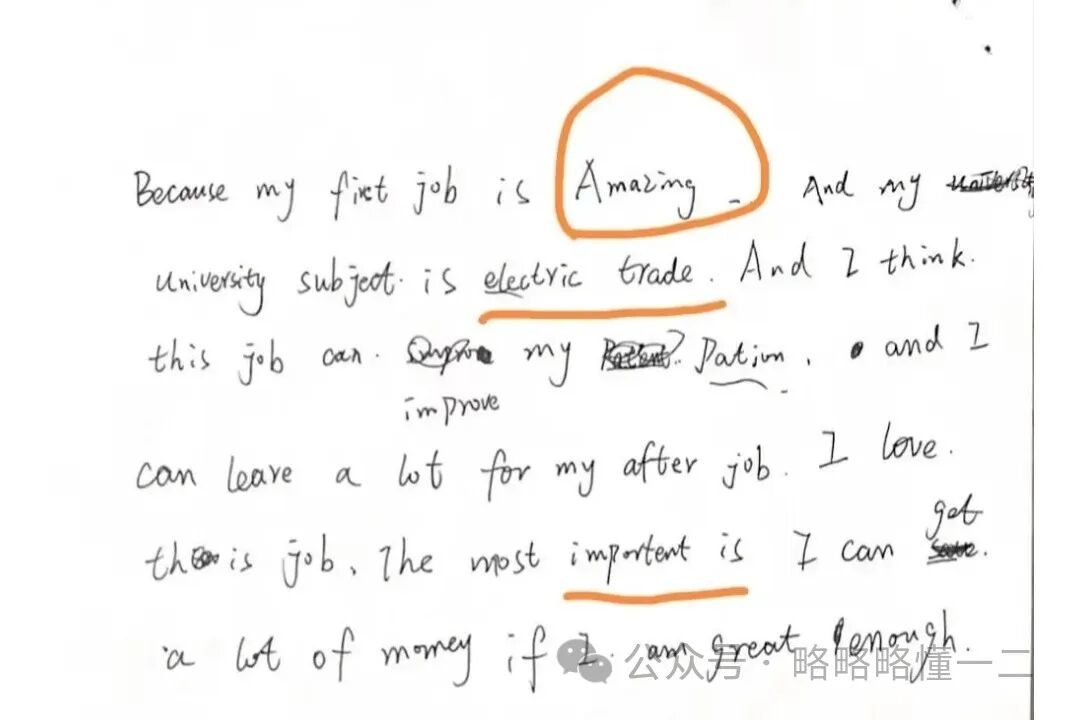 Because my first job is Amazing. And my university
university subject. is electric trade. And I think.
this job can. my Pation. and I
improve
can leave a lot for my after job. I love.
get
this job. The most importent is I can
a lot of money if I am great enough.
公众号·略略略懂一二